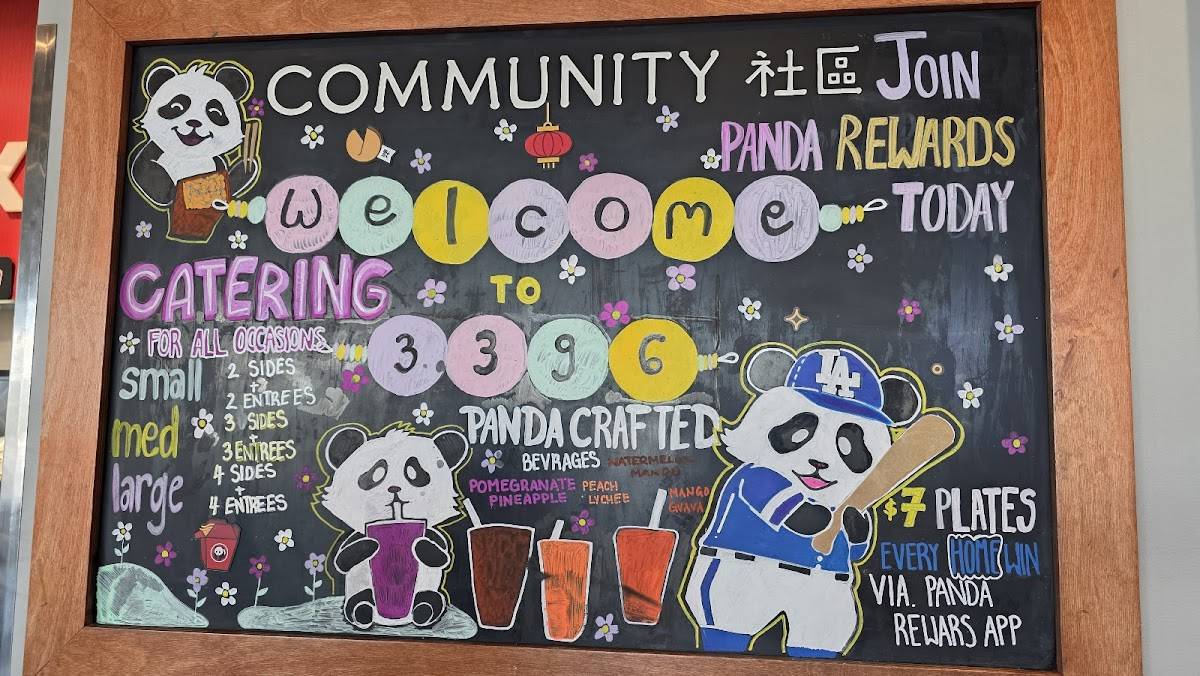 COMMUNITY 社區 JOIN
PANDA REWARDS
TODAY
welcome
TO
3.396
CATERING
FOR ALL OCCASIONS
small 2 SIDES
+
2 ENTREES
med 3 SIDES
+
3 ENTREES
large 4 SIDES
+
4 ENTREES
PANDA CRAFTED
BEVRAGES
WATERMELON
MANGO
POMEGRANATE
PINEAPPLE
PEACH
LYCHEE
MANGO
GUAVA
LA
$7 PLATES
EVERY HOME WIN
VIA. PANDA
REWARS APP